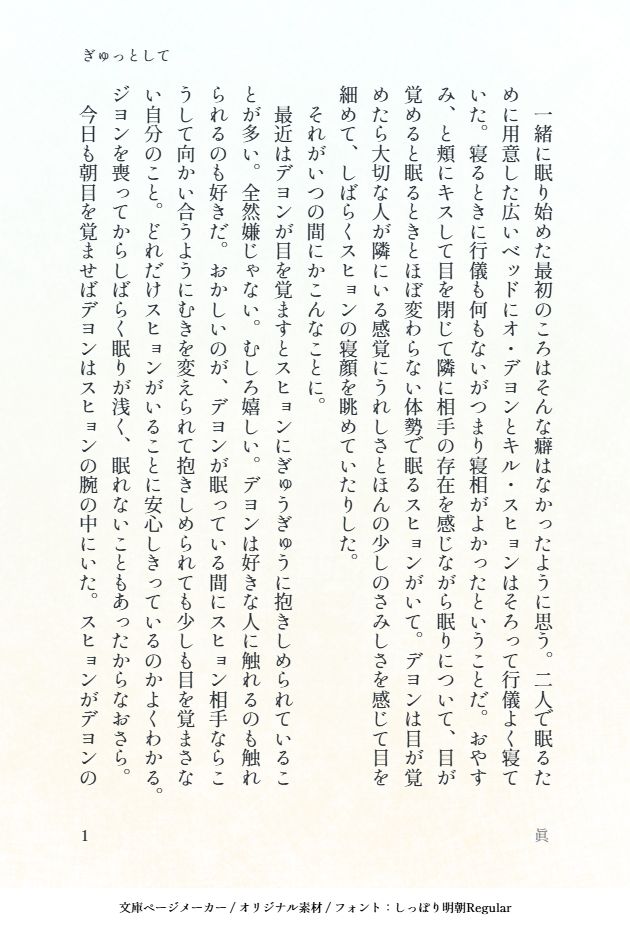 ぎゅっとして
　一緒に眠り始めた最初のころはそんな癖はなかったように思う。二人で眠るた
めに用意した広いベッドにオ・デヨンとキル・スヒョンはそろって行儀よく寝て
いた。寝るときに行儀も何もないがつまり寝相がよかったということだ。おやす
み、と頬にキスして目を閉じて隣に相手の存在を感じながら眠りについて、目が
覚めると眠るときとほぼ変わらない体勢で眠るスヒョンがいて。デヨンは目が覚
めたら大切な人が隣にいる感覚にうれしさとほんの少しのさみしさを感じて目を
細めて、しばらくスヒョンの寝顔を眺めていたりした。
　それがいつの間にかこんなことに。
　最近はデヨンが目を覚ますとスヒョンにぎゅうぎゅうに抱きしめられているこ
とが多い。全然嫌じゃない。むしろ嬉しい。デヨンは好きな人に触れるのも触れ
られるのも好きだ。おかしいのが、デヨンが眠っている間にスヒョン相手ならこ
うして向かい合うようにむきを変えられて抱きしめられても少しも目を覚まさな
い自分のこと。どれだけスヒョンがいることに安心しきっているのかよくわかる。
ジヨンを喪ってからしばらく眠りが浅く、眠れないこともあったからなおさら。
　今日も朝目を覚ませばデヨンはスヒョンの腕の中にいた。スヒョンがデヨンの
1
眞
文庫ページメーカー / オリジナル素材 / フォント：しっぽり明朝Regular